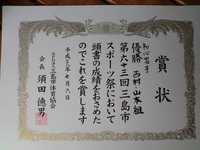 賞状
初心男子
優勝 西村 山本組
第六十三回三島市
スポーツ祭において
頭書の成績をおさめた
のでこれを賞します
平成三十年七月八日
三島市体育協会
会長 須田徳男